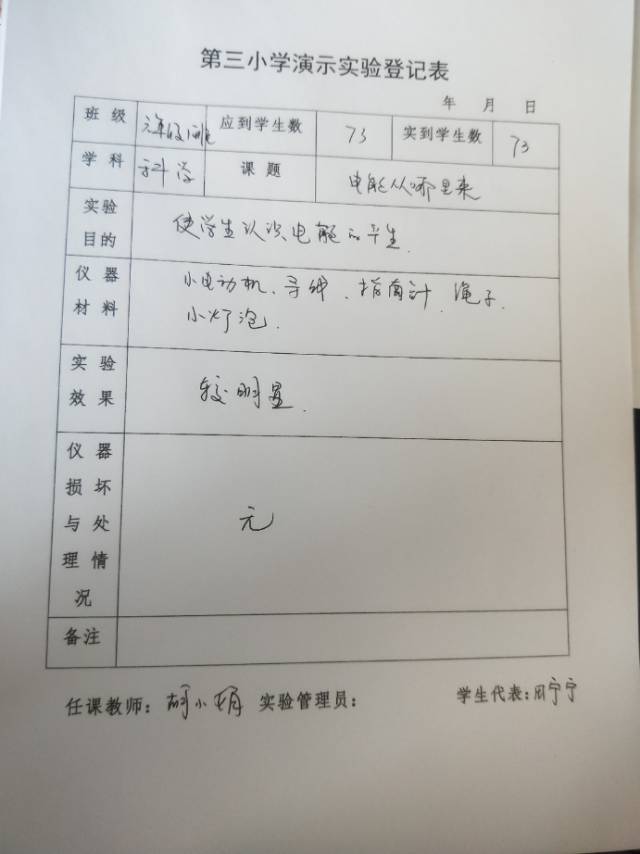 第三小学演示实验登记表
年 月 日
班 级 六年级 班 应到学生数 73 实到学生数 73
学 科 科学 课 题 电能从哪里来
实验目的 使学生认识电能的产生.
仪 器 小电动机、导线、指南针、绳子、
材 料 小灯泡.
实 验
效 果 较明显.
仪 器
损 坏
与 处 无
理 情
况
备注
任课教师: 胡小 实验管理员: 学生代表: 田宁宁